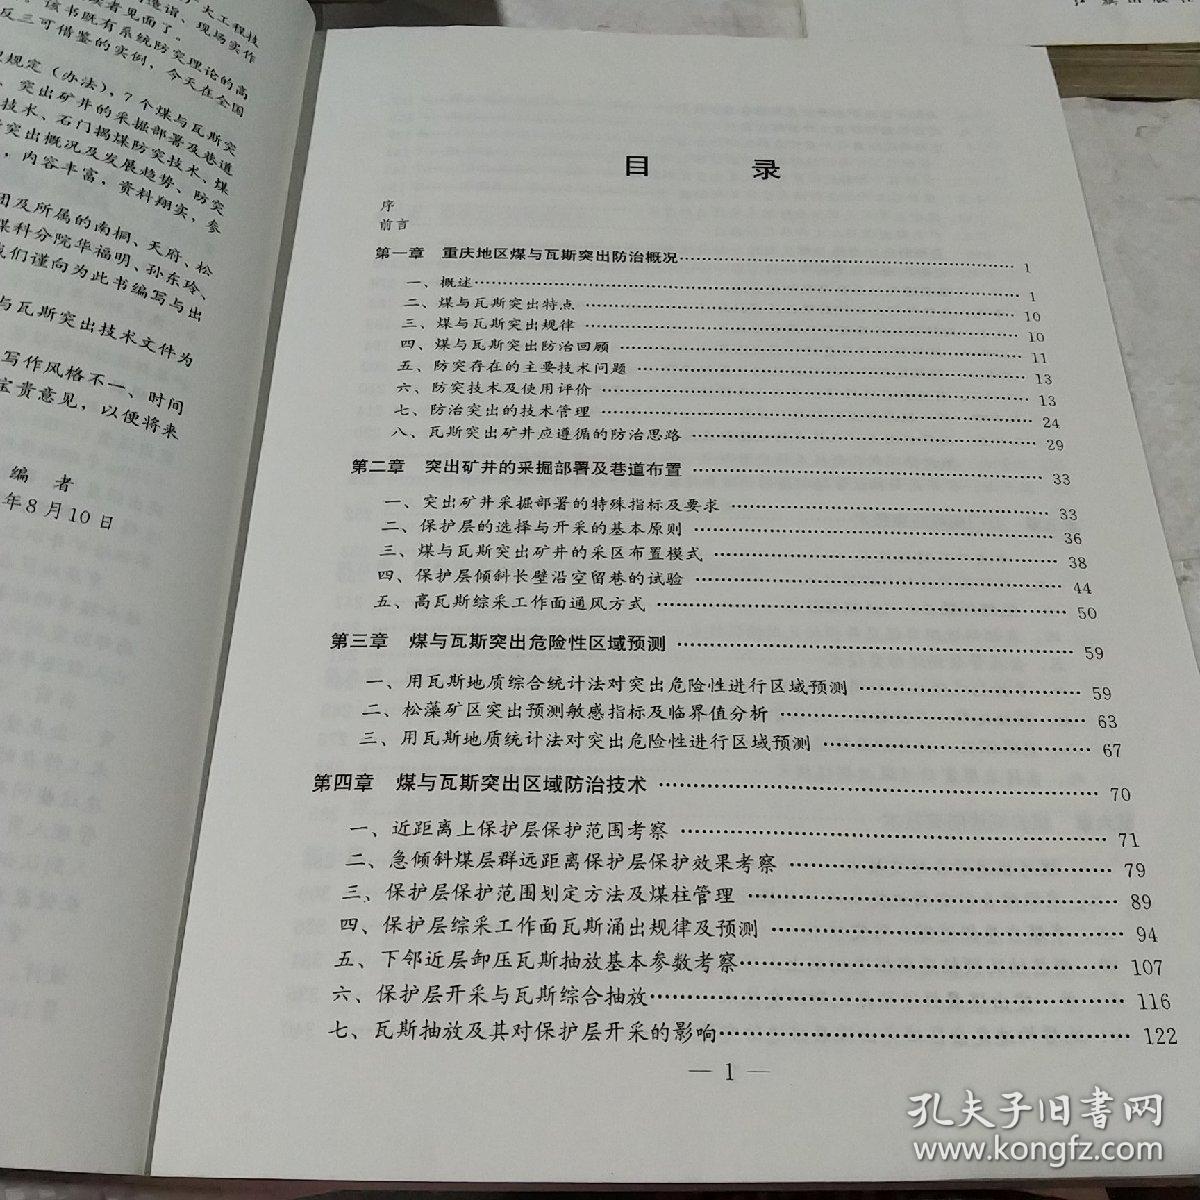 大工程技
造诣、现场实作
读者见面了。
该书既有系统防突理论的高
反三可借鉴的实例，今天在全国
规定（办法），7个煤与瓦斯突
突出矿井的采掘部署及巷道
技术、石门揭煤防突技术、煤
突出概况及发展趋势、防突
，内容丰富，资料翔实，参
团及所属的南桐、天府、松
煤科分院华福明、孙东玲、
我们谨向为此书编写与出
与瓦斯突出技术文件为
写作风格不一、时间
宝贵意见，以便将来
编 者
年8月10日
目 录
序
前言
第一章 重庆地区煤与瓦斯突出防治概况……1
一、概述……1
二、煤与瓦斯突出特点……10
三、煤与瓦斯突出规律……10
四、煤与瓦斯突出防治回顾……11
五、防突存在的主要技术问题……13
六、防突技术及使用评价……13
七、防治突出的技术管理……24
八、瓦斯突出矿井应遵循的防治思路……29
第二章 突出矿井的采掘部署及巷道布置……33
一、突出矿井采掘部署的特殊指标及要求……33
二、保护层的选择与开采的基本原则……36
三、煤与瓦斯突出矿井的采区布置模式……38
四、保护层倾斜长壁沿空留巷的试验……44
五、高瓦斯综采工作面通风方式……50
第三章 煤与瓦斯突出危险性区域预测……59
一、用瓦斯地质综合统计法对突出危险性进行区域预测……59
二、松藻矿区突出预测敏感指标及临界值分析……63
三、用瓦斯地质统计法对突出危险性进行区域预测……67
第四章 煤与瓦斯突出区域防治技术……70
一、近距离上保护层保护范围考察……71
二、急倾斜煤层群远距离保护层保护效果考察……79
三、保护层保护范围划定方法及煤柱管理……89
四、保护层综采工作面瓦斯涌出规律及预测……94
五、下邻近层卸压瓦斯抽放基本参数考察……107
六、保护层开采与瓦斯综合抽放……116
七、瓦斯抽放及其对保护层开采的影响……122
— 1 —
孔夫子旧书网
www.kongfz.com